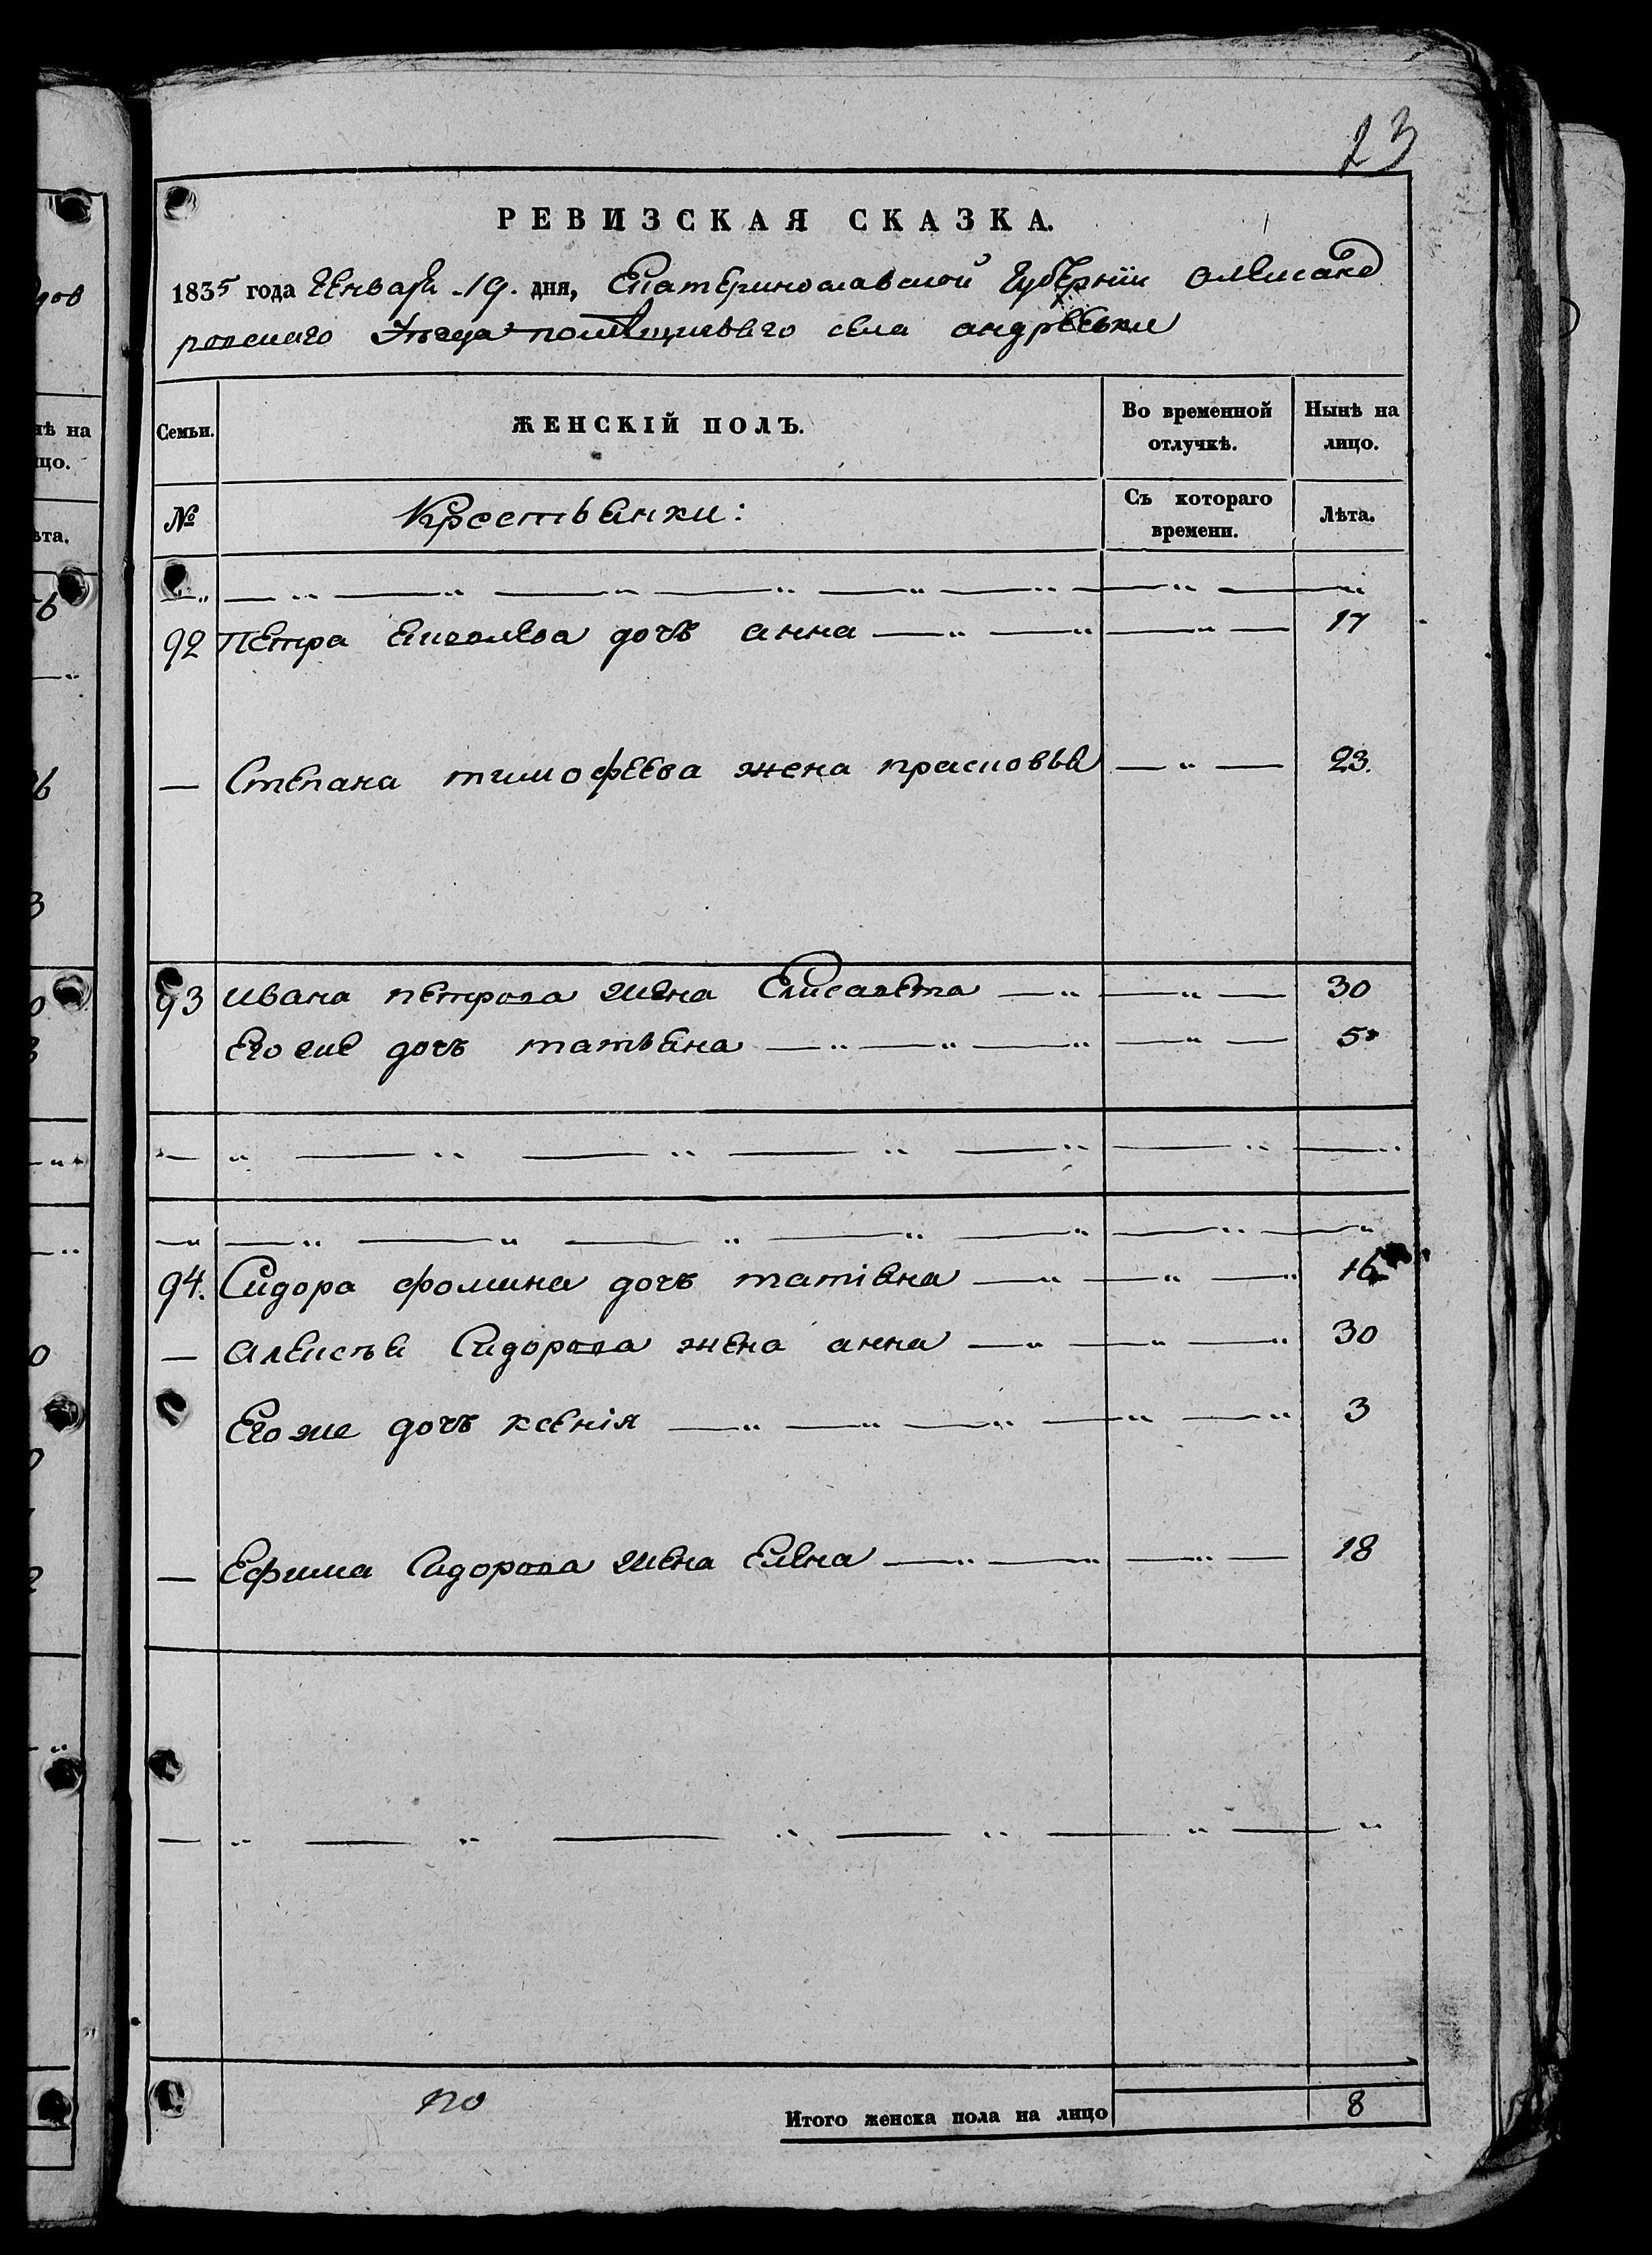 23
РЕВИЗСКАЯ СКАЗКА.
1835 года Генваря 19. дня, Екатеринославской Губерніи Александ
ровскаго Уѣзда помѣщичьяго села андрѣевки
Семьи. ЖЕНСКІЙ ПОЛЪ. Во временной отлучкѣ. Нынѣ на лицо.
№ Крестьянки: Съ котораго времени. Лѣта.
92 Петра дочь анна 17
— Степана тимофеева жена прасковья 23.
93 ивана петрова жена Елисавета 30
Его же дочь татьяна 5
94. Сидора фомина дочь татіяна 16
— алексѣя Сидорова жена анна 30
Его же дочь ксенія 3
— Ефима Сидорова жена Елена 18
по Итого женска пола на лицо 8